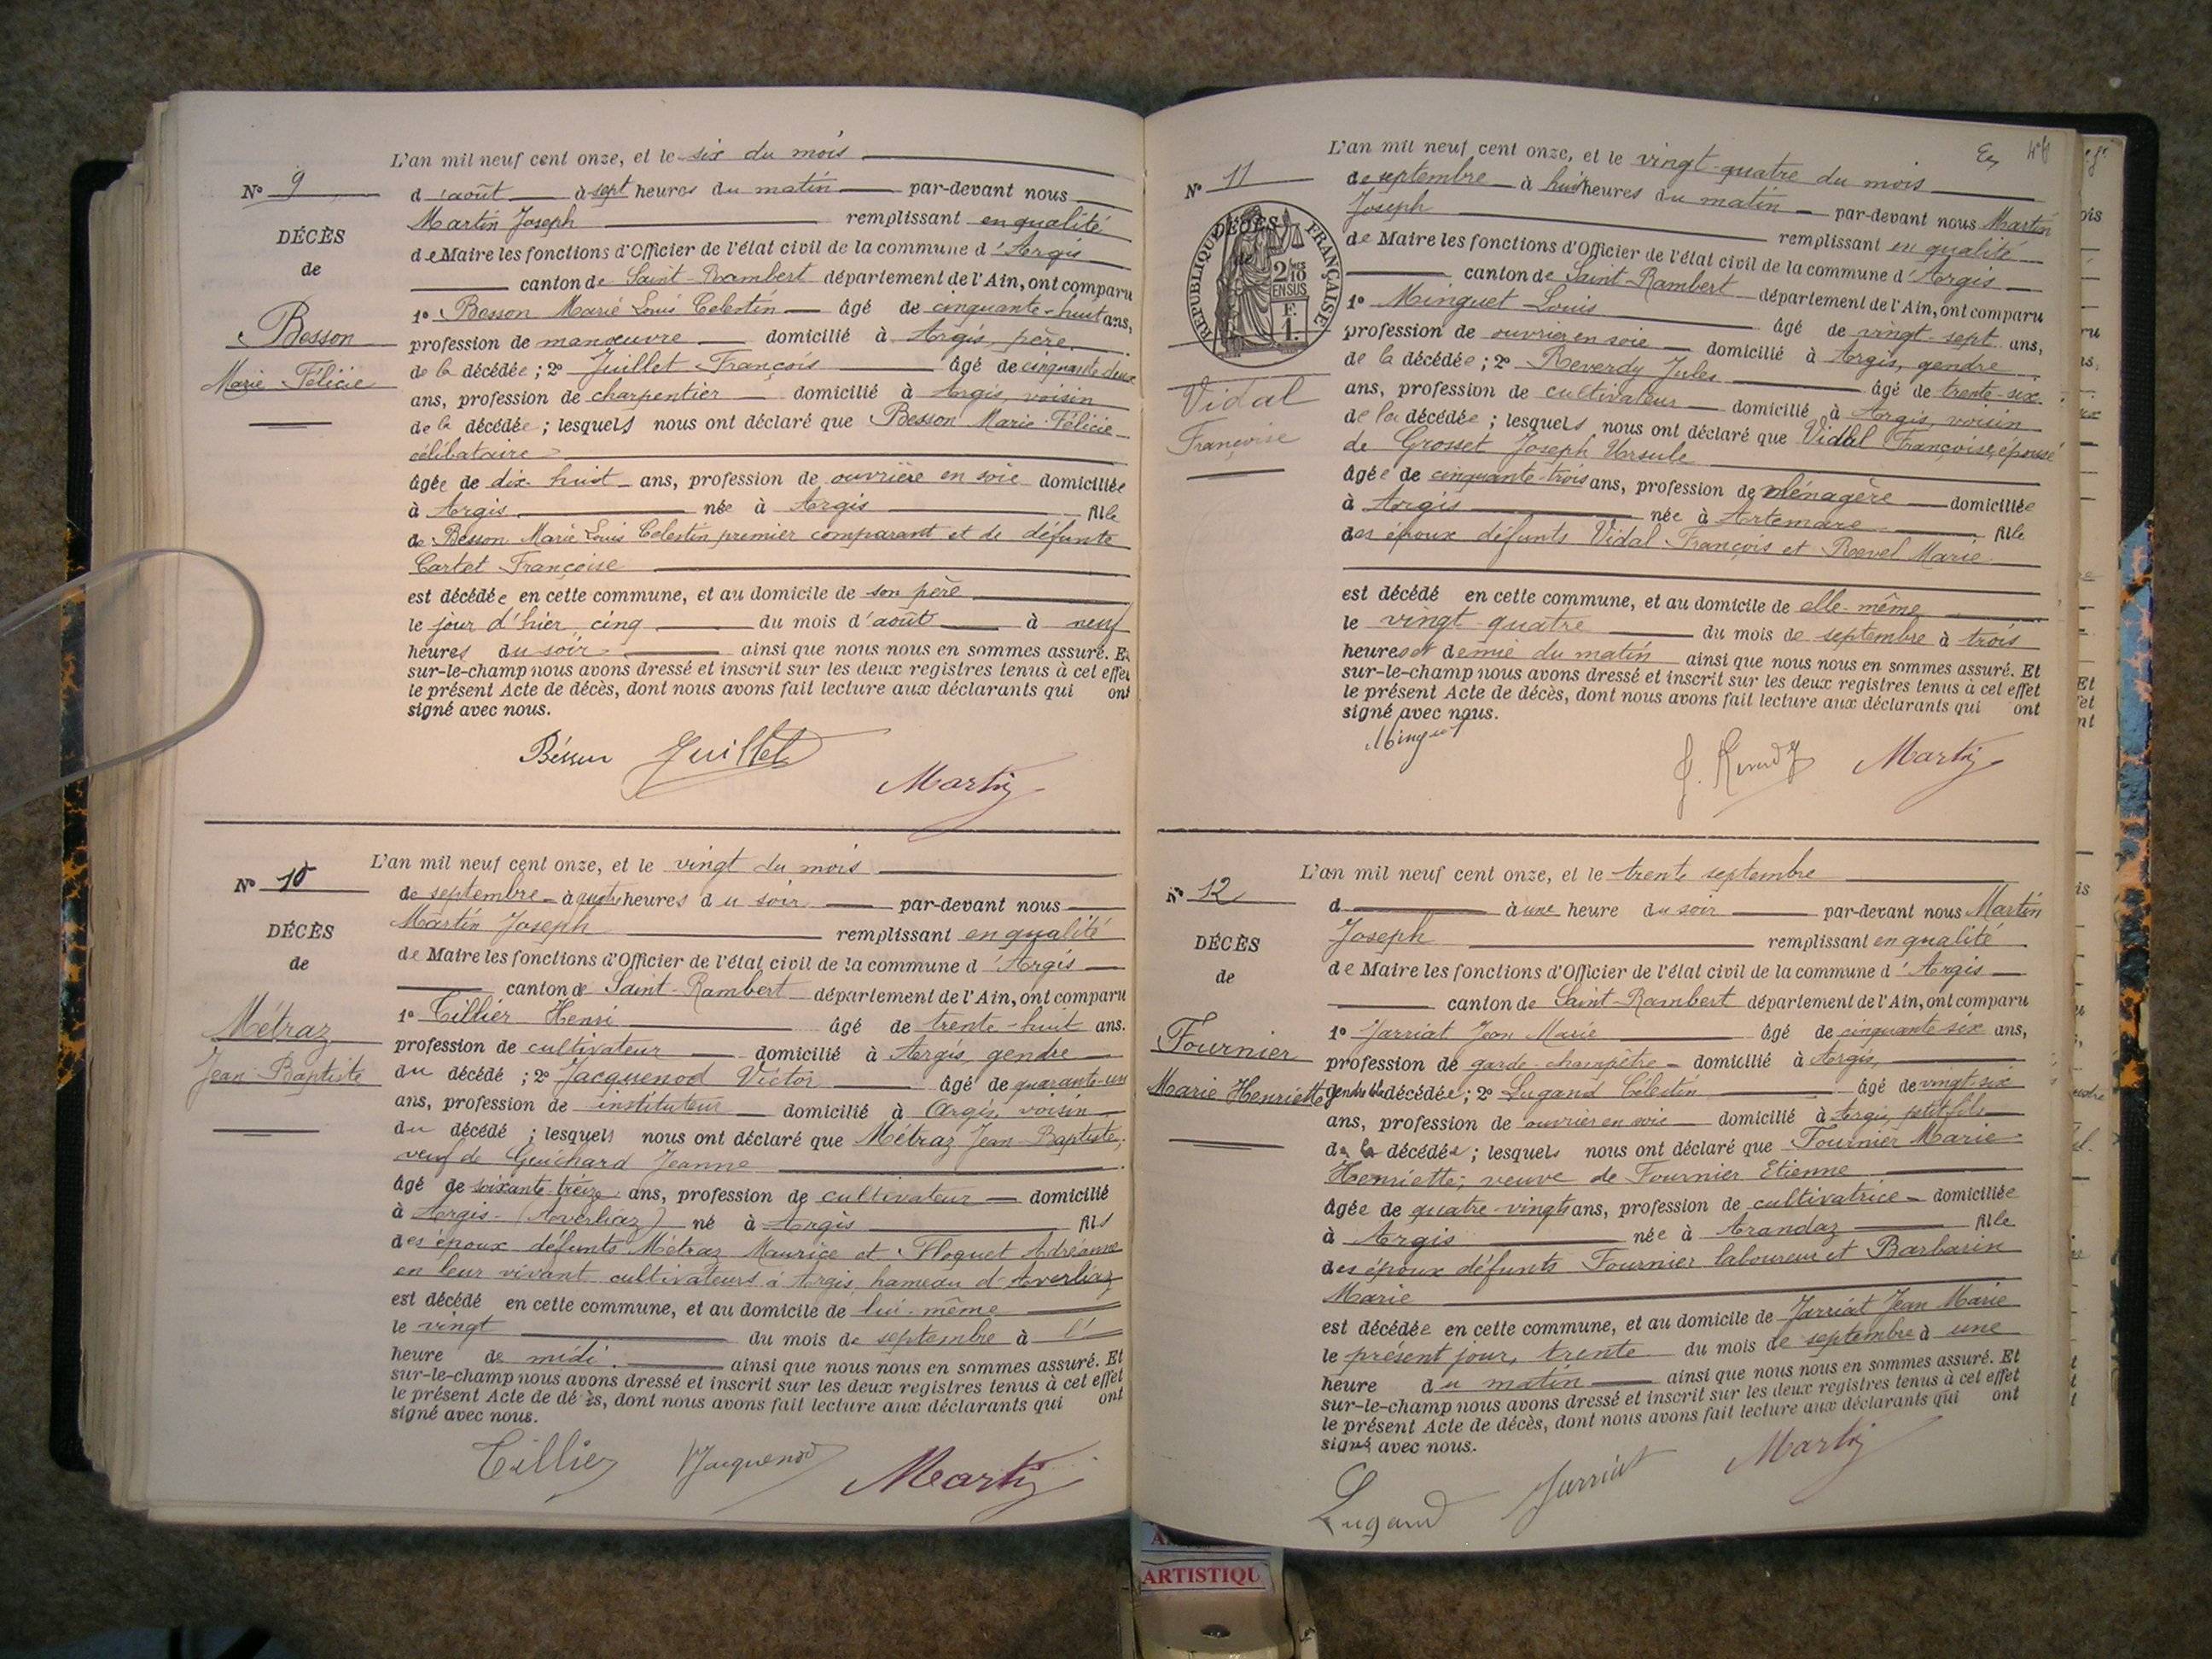 L'an mil neuf cent onze, et le six du mois
N° 9
d'août à sept heures du matin par-devant nous
Martin Joseph remplissant en qualité
DÉCÈS
de Maire les fonctions d'Officier de l'état civil de la commune d'Argis
de
canton de Saint-Rambert département de l'Ain, ont comparu
1° Besson Marie Louis Celestin âgé de cinquante-huit ans,
Besson
profession de manœuvre domicilié à Argis, père
Marie Félicie
de la décédée ; 2° Juillet François âgé de cinquante deux
ans, profession de charpentier domicilié à Argis, voisin
de la décédée ; lesquels nous ont déclaré que Besson Marie-Félicie
célibataire
âgée de dix huit ans, profession de ouvrière en soie domiciliée
à Argis née à Argis fille
de Besson Marie Louis Celestin premier comparant et de défunte
Cartet Françoise
est décédée en cette commune, et au domicile de son père
le jour d'hier cinq du mois d'août à neuf
heures du soir ainsi que nous nous en sommes assuré. Et
sur-le-champ nous avons dressé et inscrit sur les deux registres tenus à cet effet
le présent Acte de décès, dont nous avons fait lecture aux déclarants qui ont
signé avec nous.
Besson Juillet Martin
L'an mil neuf cent onze, et le vingt du mois
N° 10
de septembre à quatre heures du soir par-devant nous
Martin Joseph remplissant en qualité
DÉCÈS
de Maire les fonctions d'Officier de l'état civil de la commune d'Argis
de
canton de Saint-Rambert département de l'Ain, ont comparu
1° Tillier Henri âgé de trente-huit ans.
Métraz
profession de cultivateur domicilié à Argis, gendre
Jean Baptiste
du décédé ; 2° Jacquenod Victor âgé de quarante-un
ans, profession de instituteur domicilié à Argis, voisin
du décédé ; lesquels nous ont déclaré que Métraz Jean-Baptiste,
veuf de Guichard Jeanne
âgé de soixante-treize ans, profession de cultivateur domicilié
à Argis (Averliaz) né à Argis fils
des époux défunts Métraz Maurice et Floquet Adréanne
en leur vivant cultivateurs à Argis, hameau d'Averliaz
est décédé en cette commune, et au domicile de lui-même
le vingt du mois de septembre à l'
heure de midi. ainsi que nous nous en sommes assuré. Et
sur-le-champ nous avons dressé et inscrit sur les deux registres tenus à cet effet
le présent Acte de décès, dont nous avons fait lecture aux déclarants qui ont
signé avec nous.
Tillier Jacquenod Martin
L'an mil neuf cent onze, et le vingt-quatre du mois
N° 11
de septembre à huit heures du matin par-devant nous Martin
Joseph remplissant en qualité
RÉPUBLIQUE FRANÇAISE
DÉCÈS
2/10 EN SUS
F. 1.
de Maire les fonctions d'Officier de l'état civil de la commune d'Argis
canton de Saint-Rambert département de l'Ain, ont comparu
1° Minguet Louis âgé de vingt-sept ans,
profession de ouvrier en soie domicilié à Argis, gendre
de la décédée ; 2° Reverdy Jules âgé de trente-six
Vidal
ans, profession de cultivateur domicilié à Argis, voisin
Françoise
de la décédée ; lesquels nous ont déclaré que Vidal Françoise, épouse
de Grosset Joseph Ursule
âgée de cinquante-trois ans, profession de ménagère domiciliée
à Argis née à Artemare fille
des époux défunts Vidal François et Revel Marie
est décédé en cette commune, et au domicile de elle-même
le vingt-quatre du mois de septembre à trois
heures et demie du matin ainsi que nous nous en sommes assuré. Et
sur-le-champ nous avons dressé et inscrit sur les deux registres tenus à cet effet
le présent Acte de décès, dont nous avons fait lecture aux déclarants qui ont
signé avec nous.
Minguet J. Reverdy Martin
L'an mil neuf cent onze, et le trente septembre
N° 12
d à une heure du soir par-devant nous Martin
Joseph remplissant en qualité
DÉCÈS
de Maire les fonctions d'Officier de l'état civil de la commune d'Argis
de
canton de Saint-Rambert département de l'Ain, ont comparu
1° Jarriat Jean Marie âgé de cinquante six ans,
Fournier
profession de garde-champêtre domicilié à Argis,
Marie Henriette
gendre de la décédée ; 2° Lugand Célestin âgé de vingt-six
ans, profession de ouvrier en soie domicilié à Argis, petit fils
de la décédée ; lesquels nous ont déclaré que Fournier Marie
Henriette, veuve de Fournier Etienne
âgée de quatre-vingts ans, profession de cultivatrice domiciliée
à Argis née à Arandaz fille
des époux défunts Fournier laboureur et Barbarin
Marie
est décédée en cette commune, et au domicile de Jarriat Jean Marie
le présent jour, trente du mois de septembre à une
heure du matin ainsi que nous nous en sommes assuré. Et
sur-le-champ nous avons dressé et inscrit sur les deux registres tenus à cet effet
le présent Acte de décès, dont nous avons fait lecture aux déclarants qui ont
signé avec nous.
Lugand Jarriat Martin
ARTISTIQU